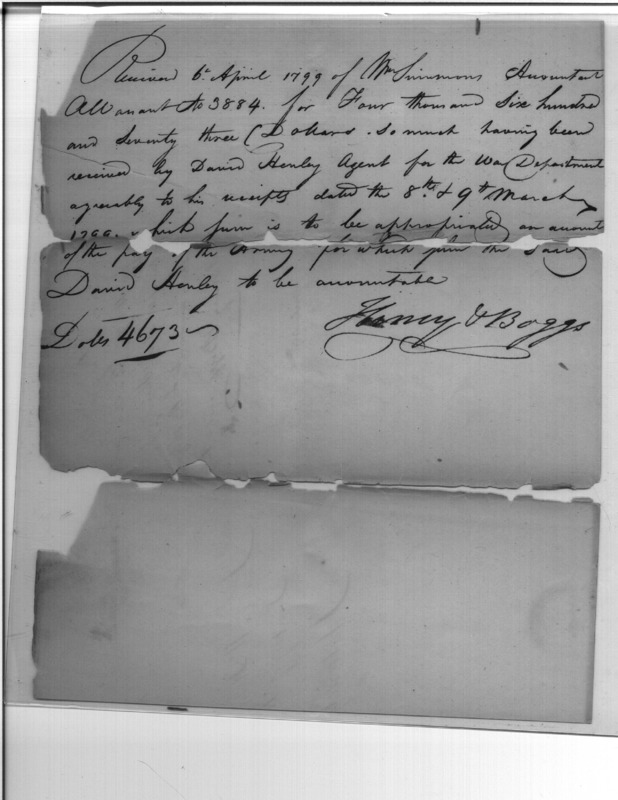 Received 6th April 1799 of Wm Simmons Accountant
A Warrant No 3884. for Four thousand Six hundred
and Seventy three Dollars. so much having been
received by David Henley Agent for the War Department
agreeably to his receipts dated the 8th & 9th March
1799. which sum is to be appropriated on account
of the pay of the Army for which sum the said
David Henley to be accountable
Dolls 4673
Harvey & Boggs